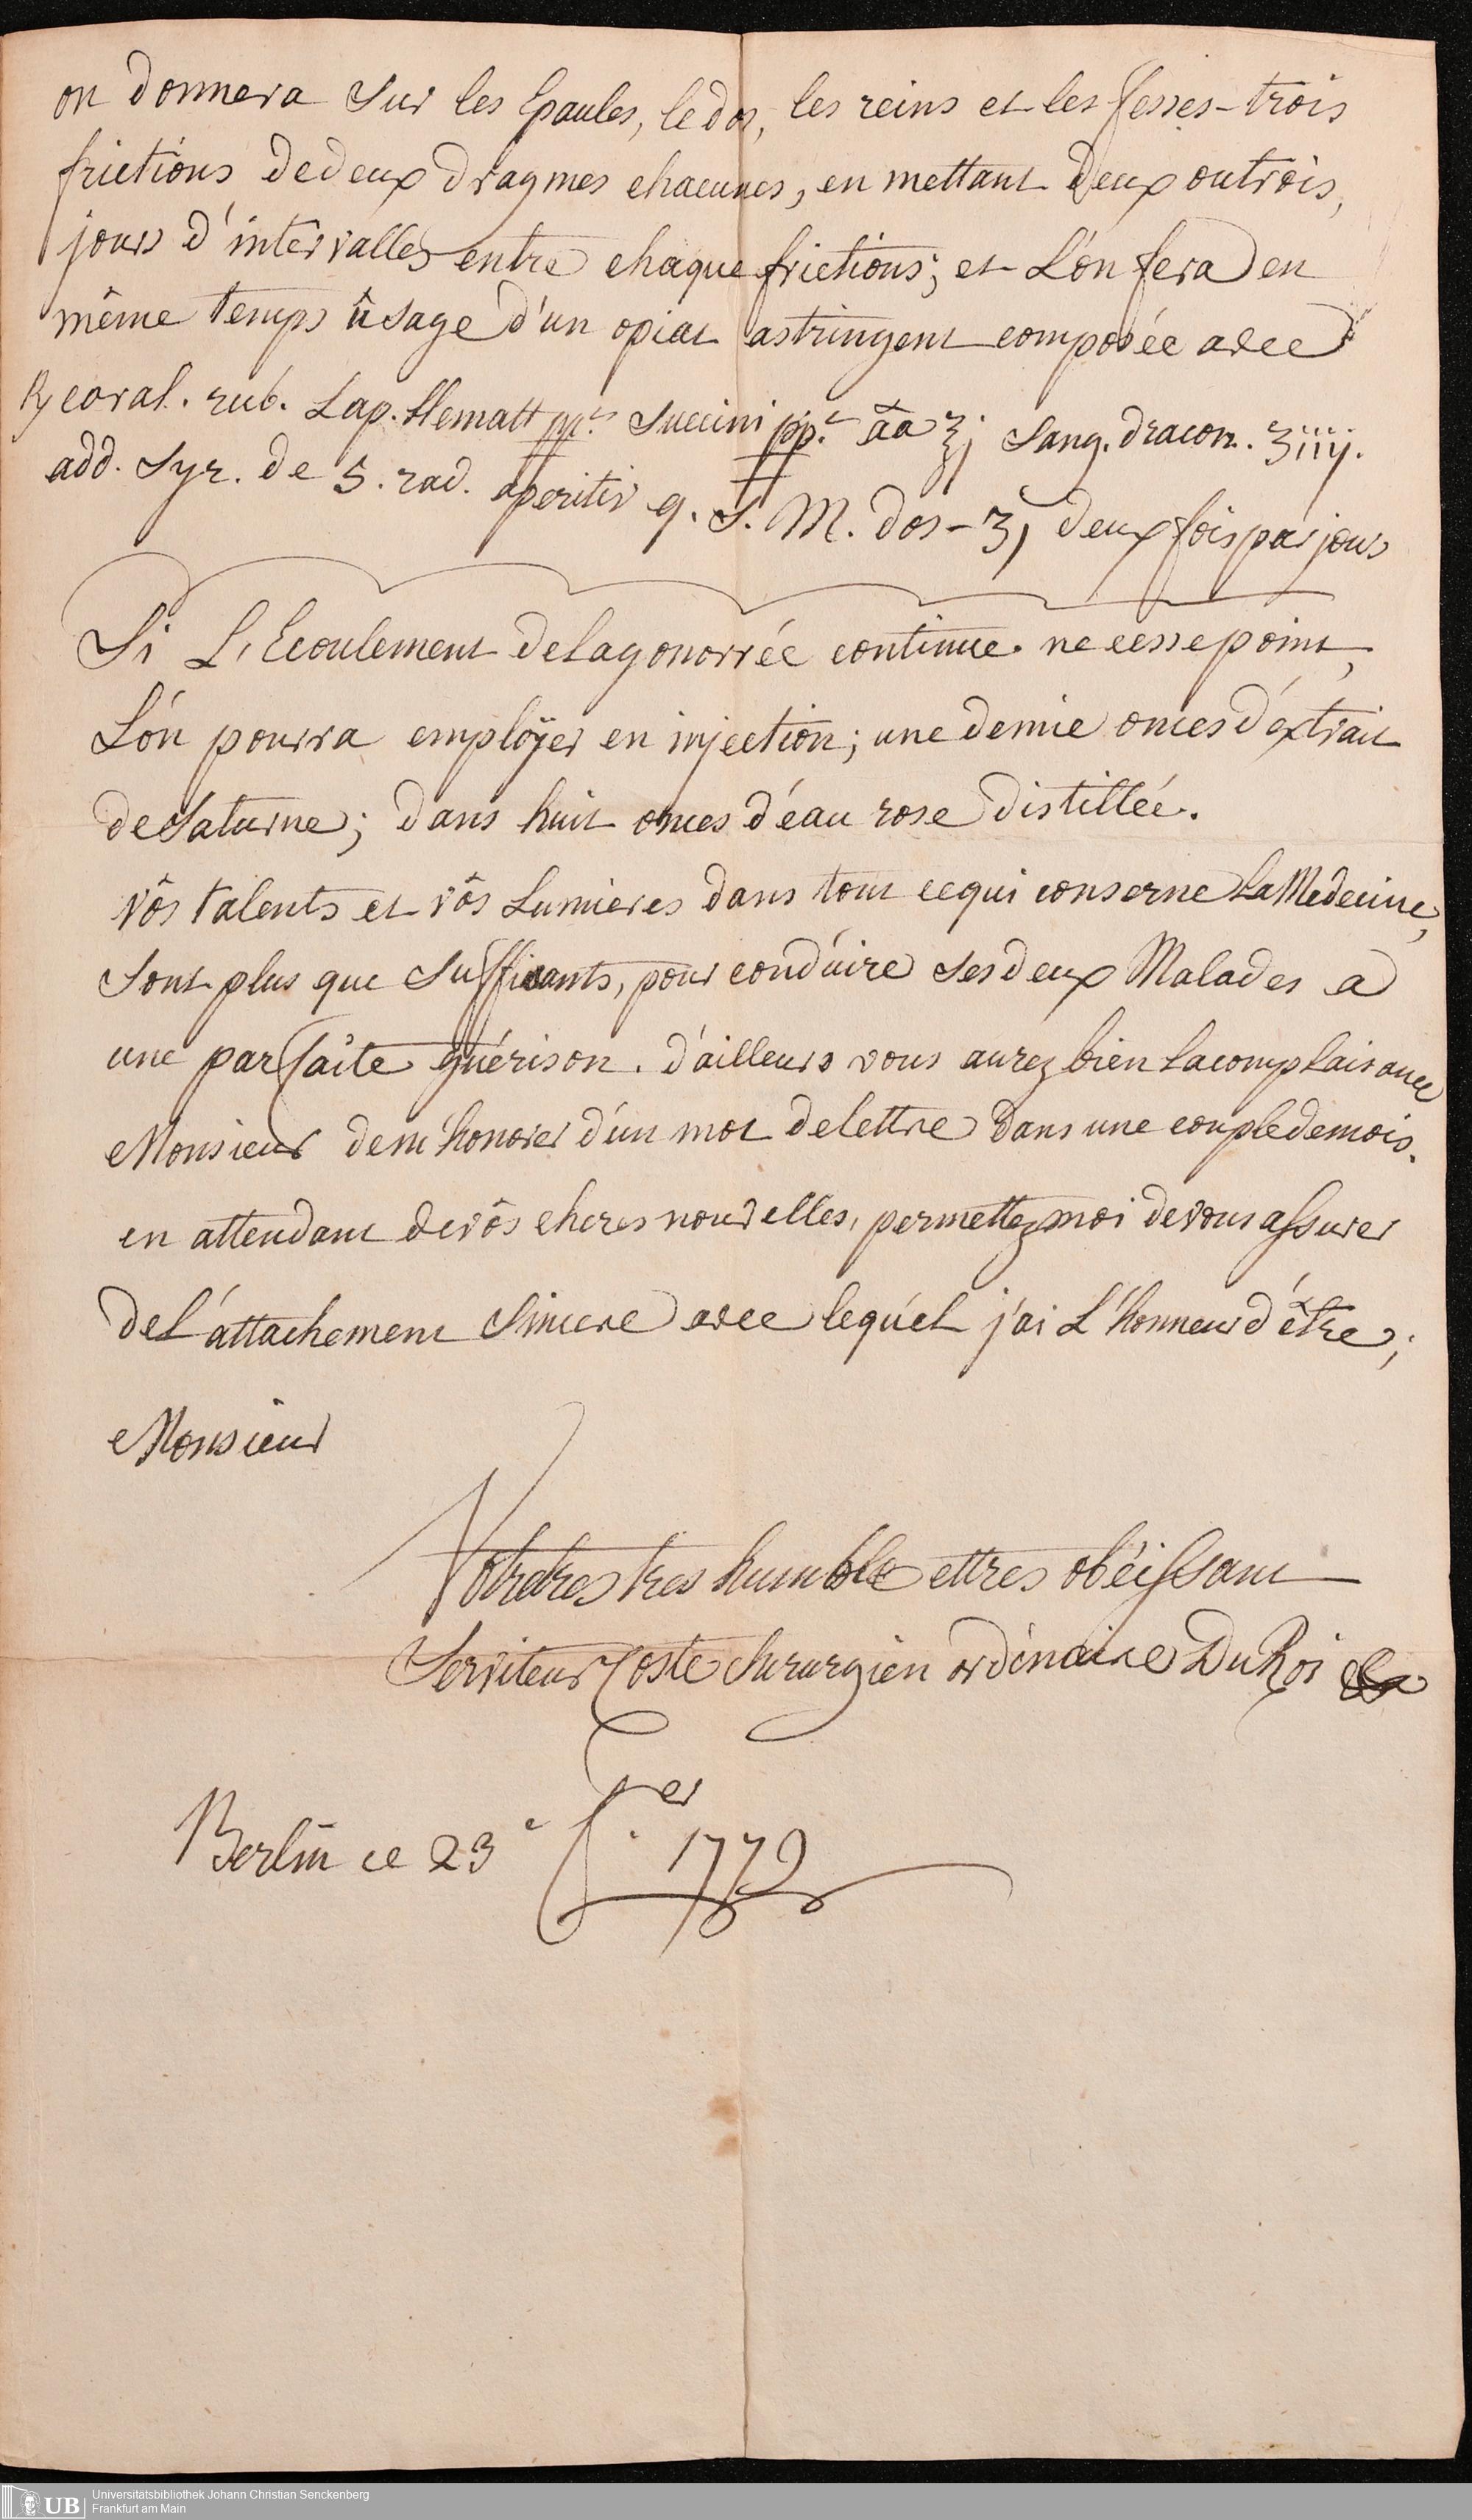 on donnera Sur les Epaules, le dos, les reins et les fesses - trois
frictions de deux dragmes chacunes, en mettant deux ou trois,
jours d'intervalles entre chaque frictions; et L'on fera en
même temps ûsage d'un opiat astringent composée avec
℞ coral. rub. Lap. Hematt ppt. Succini ppt. ãa ʒj Sang. dracon. ʒiiij.
add. Syr. de 5. rad. aperitiv q. S. M. dos - ʒj deux fois par jours
Si L'Ecoulement de la gonorrée continue. ne cesse point,
L'on pourra employer en injection; une demie onces d'extrait
de Saturne; dans huit onces d'eau rose distillée.
vôs talents et vôs Lumieres dans tout ce qui conserne La Medecine,
Sont plus que Suffisants, pour conduire ses deux Malades a
une parfaite guérison. d'ailleurs vous aurez bien la complaisance
Monsieur de m'honorer d'un mot de lettre dans une couple de mois.
en attendant de vôs cheres nouvelles, permettez moi de vous assurer
de L'attachement Sincere avec lequel j'ai L'honneur d'être;
Monsieur
Votre tres humble et tres obéissant
Serviteur Coste Chirurgien ordinaire Du Roi
Berlin ce 23e 1779
Universitätsbibliothek Johann Christian Senckenberg
UB Frankfurt am Main